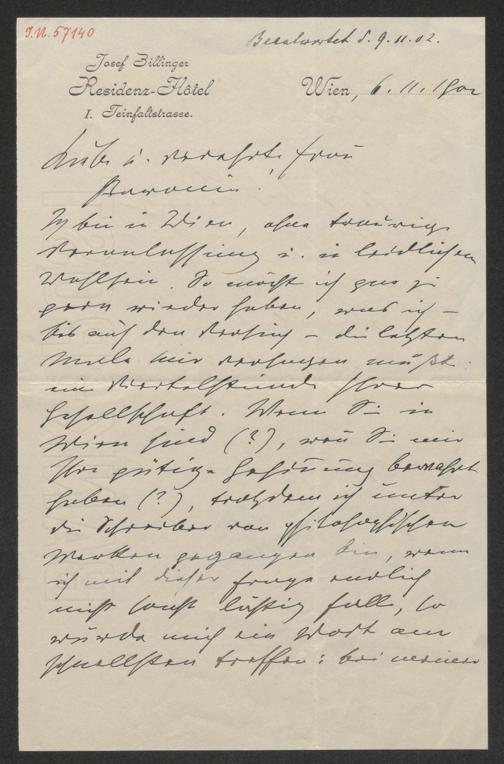 I.N. 57140
Beantwortet d. 9.11.02.
Josef Billinger
Residenz-Hôtel
I. Teinfaltstrasse.
Wien, 6. 11. 1902
Liebe u. verehrte Frau
Baronin!
Ich bin in Wien, ohne traurige
Veranlassung u. in leidlichem
Wohlsein. So möcht ich gar zu
gern wieder haben, was ich –
bis auf den Versuch – die letzten
Male mir versagen mußt:
ein Viertelstünde Ihrer
Gesellschaft. Wenn Sie in
Wien sind (?), wenn Sie mir
Ihre gütige Gesinnung bewahrt
haben (?), trotzdem ich unter
die Schreiber von philosophischen
Werken gegangen bin, wenn
ich mit dieser Frage endlich
nicht sonst lästig fall, so
würde mich ein Wort am
schnellsten treffen: bei meiner